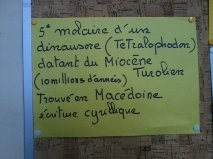 5° molaire d'un
dinausore (Tetralophodon)
datant du Miocène
(10 millions d'années) Turolien
Trouvé en Macédoine
écriture cyrillique